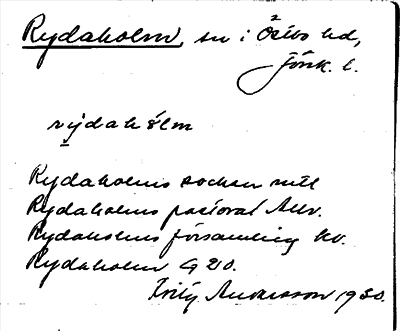 Rydaholm, sn i Östbo hd,
Jönk. l.
rýdahólm
Rydaholms socken
Rydaholms pastorat
Rydaholms församling kv.
Rydaholm G 20.
Fritz Andersson 1930.